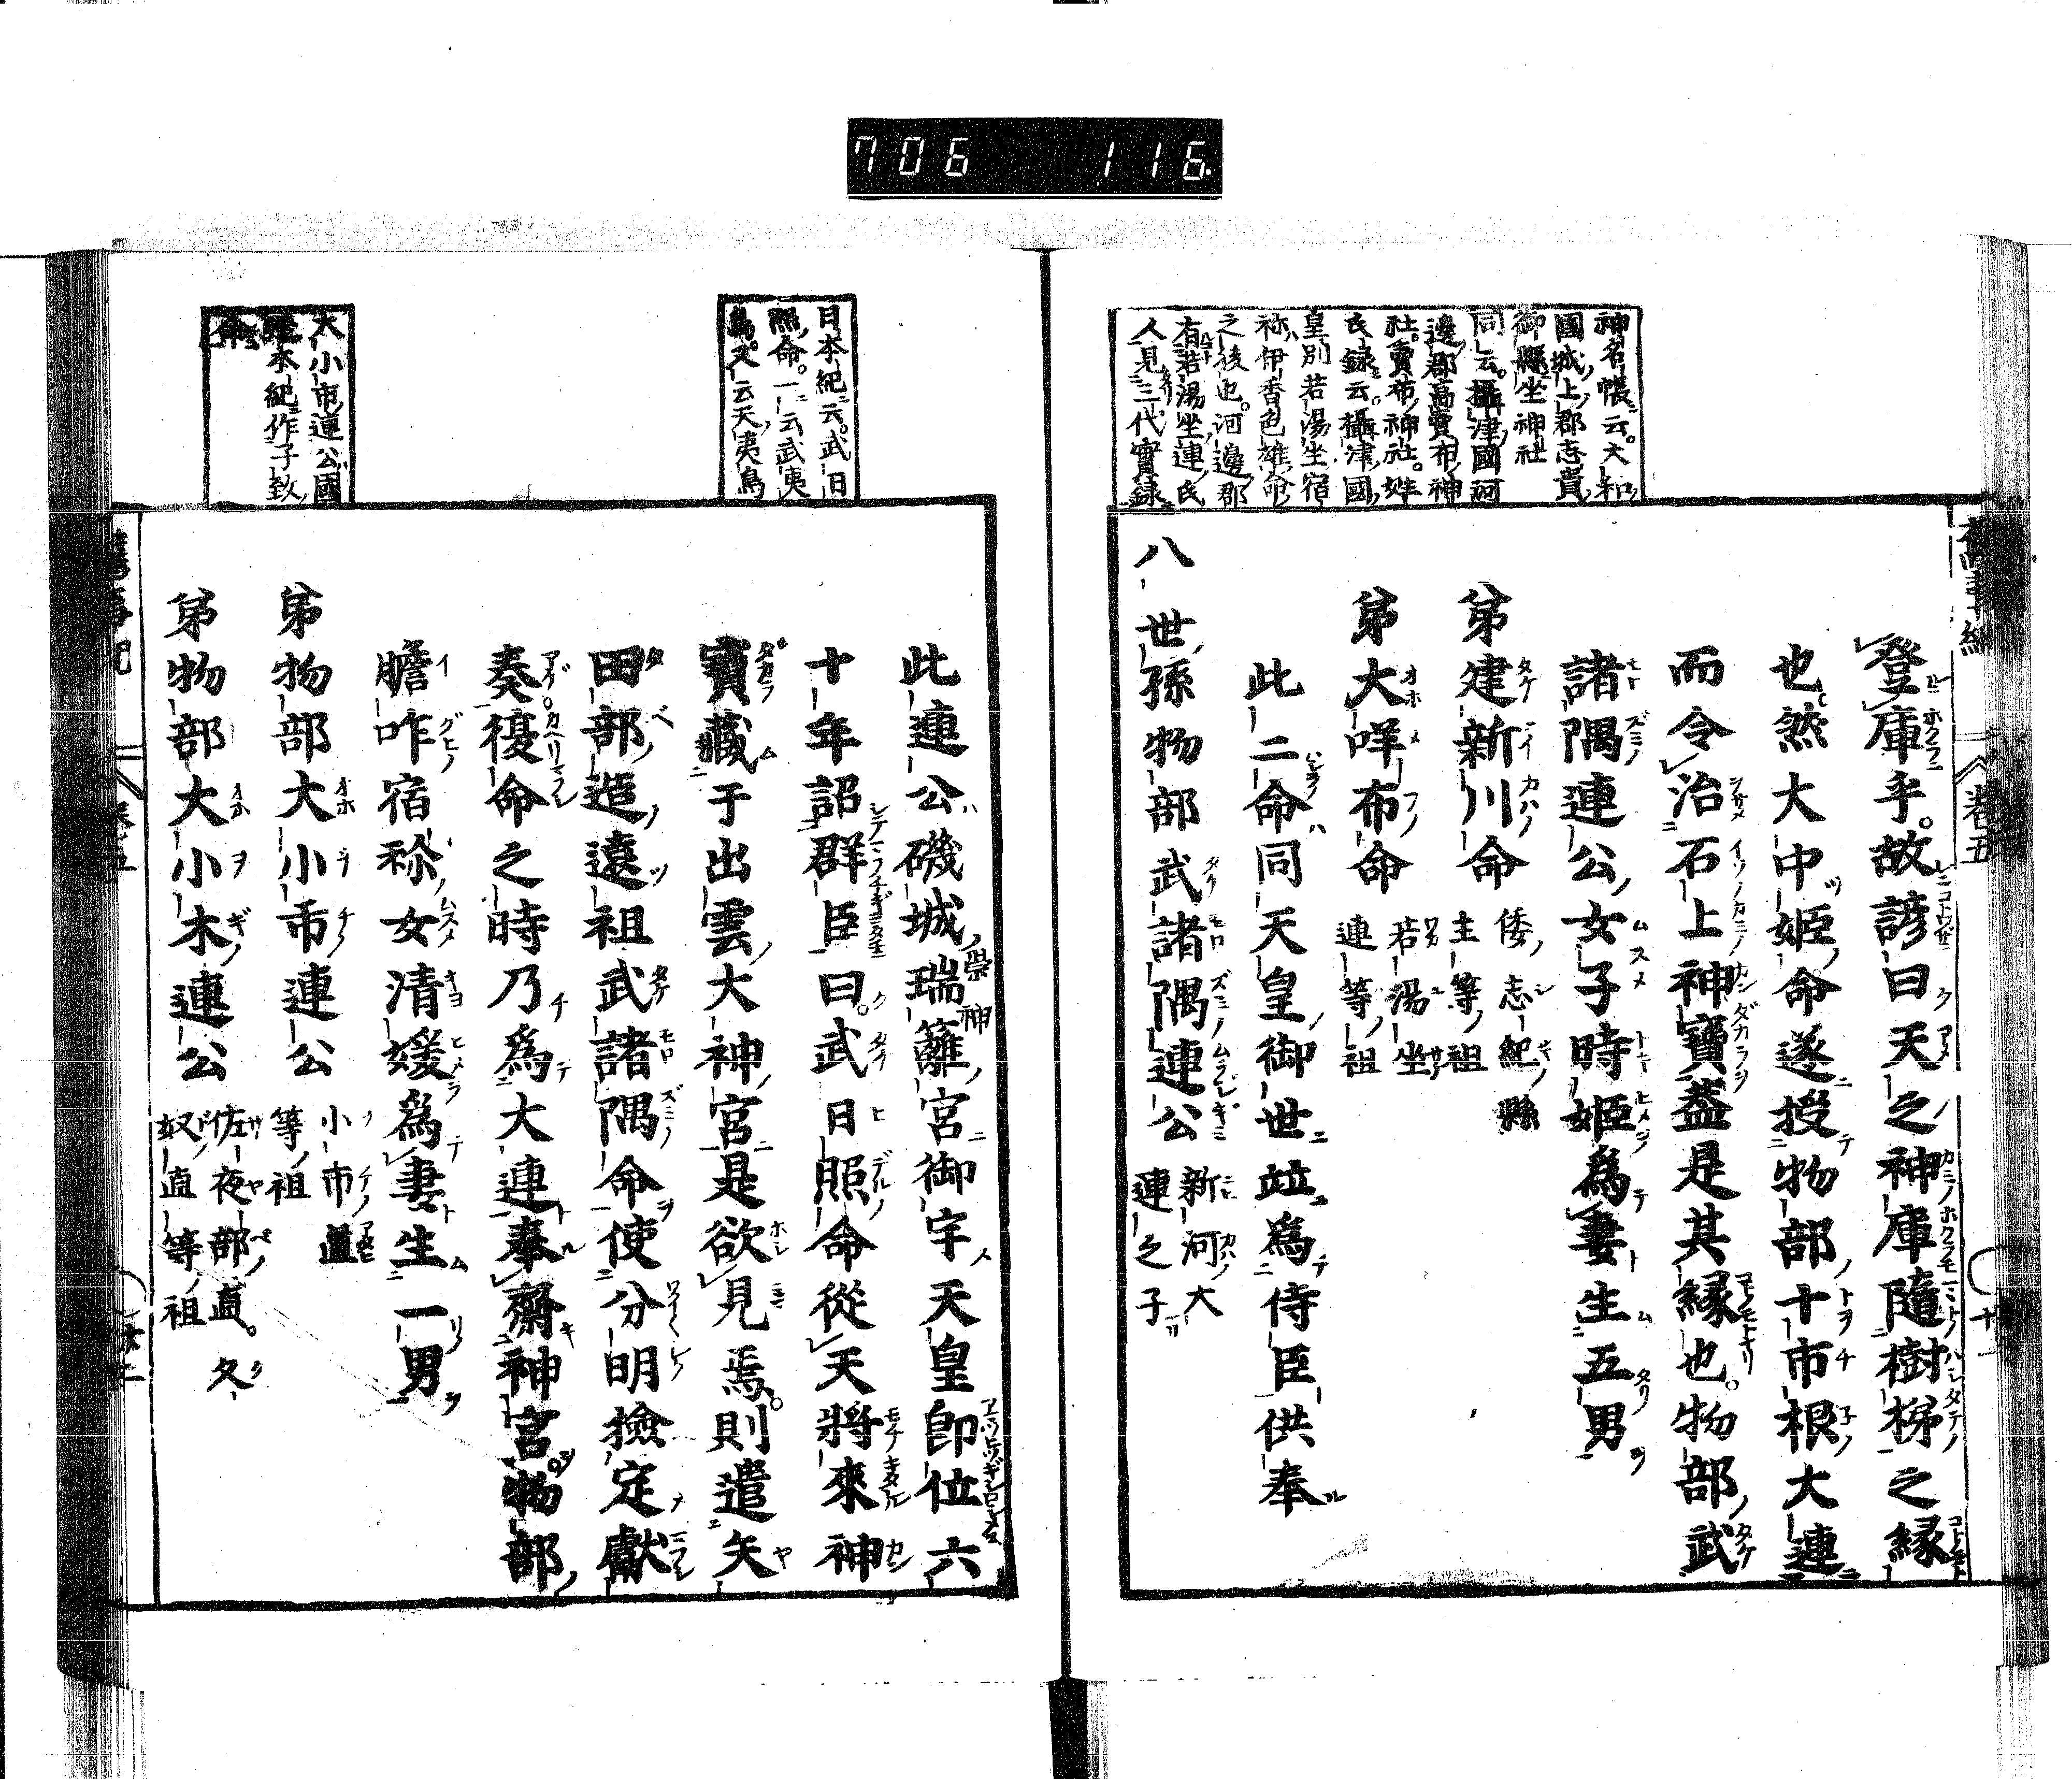 706 116
神名帳云。大和
國城上郡志貴
御縣坐神社
同云。攝津國河
邊郡高賣布神
社。賣布神社。姓
氏録云攝津國
皇別若湯坐宿
祢伊香色雄命
之後也。河邊郡
有若湯坐連氏
人見三代實録
登庫乎。故諺曰天之神庫隨樹梯之縁
也。然大中姫命遂授物部十市根大連
而令治石上神寶蓋是其縁也。物部武
諸隅連公女子時姫爲妻生五男
弟建新川命 倭志紀縣主等祖
弟大咩布命 若湯坐連等祖
此二命同天皇御世竝爲侍臣供奉
八世孫物部武諸隅連公 新河大連之子
日本紀云。武日
照命。一云武夷
鳥。又云天夷鳥
大小市連公國
本紀作子致
命
此連公磯城瑞籬宮御宇天皇即位六
崇神
十年詔群臣曰。武日照命從天將來神
寶藏于出雲大神宮是欲見焉。則遣矢
田部造遠祖武諸隅命使分明撿定獻
奏復命之時乃爲大連奉齋神宮。物部
膽咋宿祢女清媛爲妻生一男
弟物部大小市連公 小市直等祖
弟物部大小木連公 佐夜部直。久奴直等祖